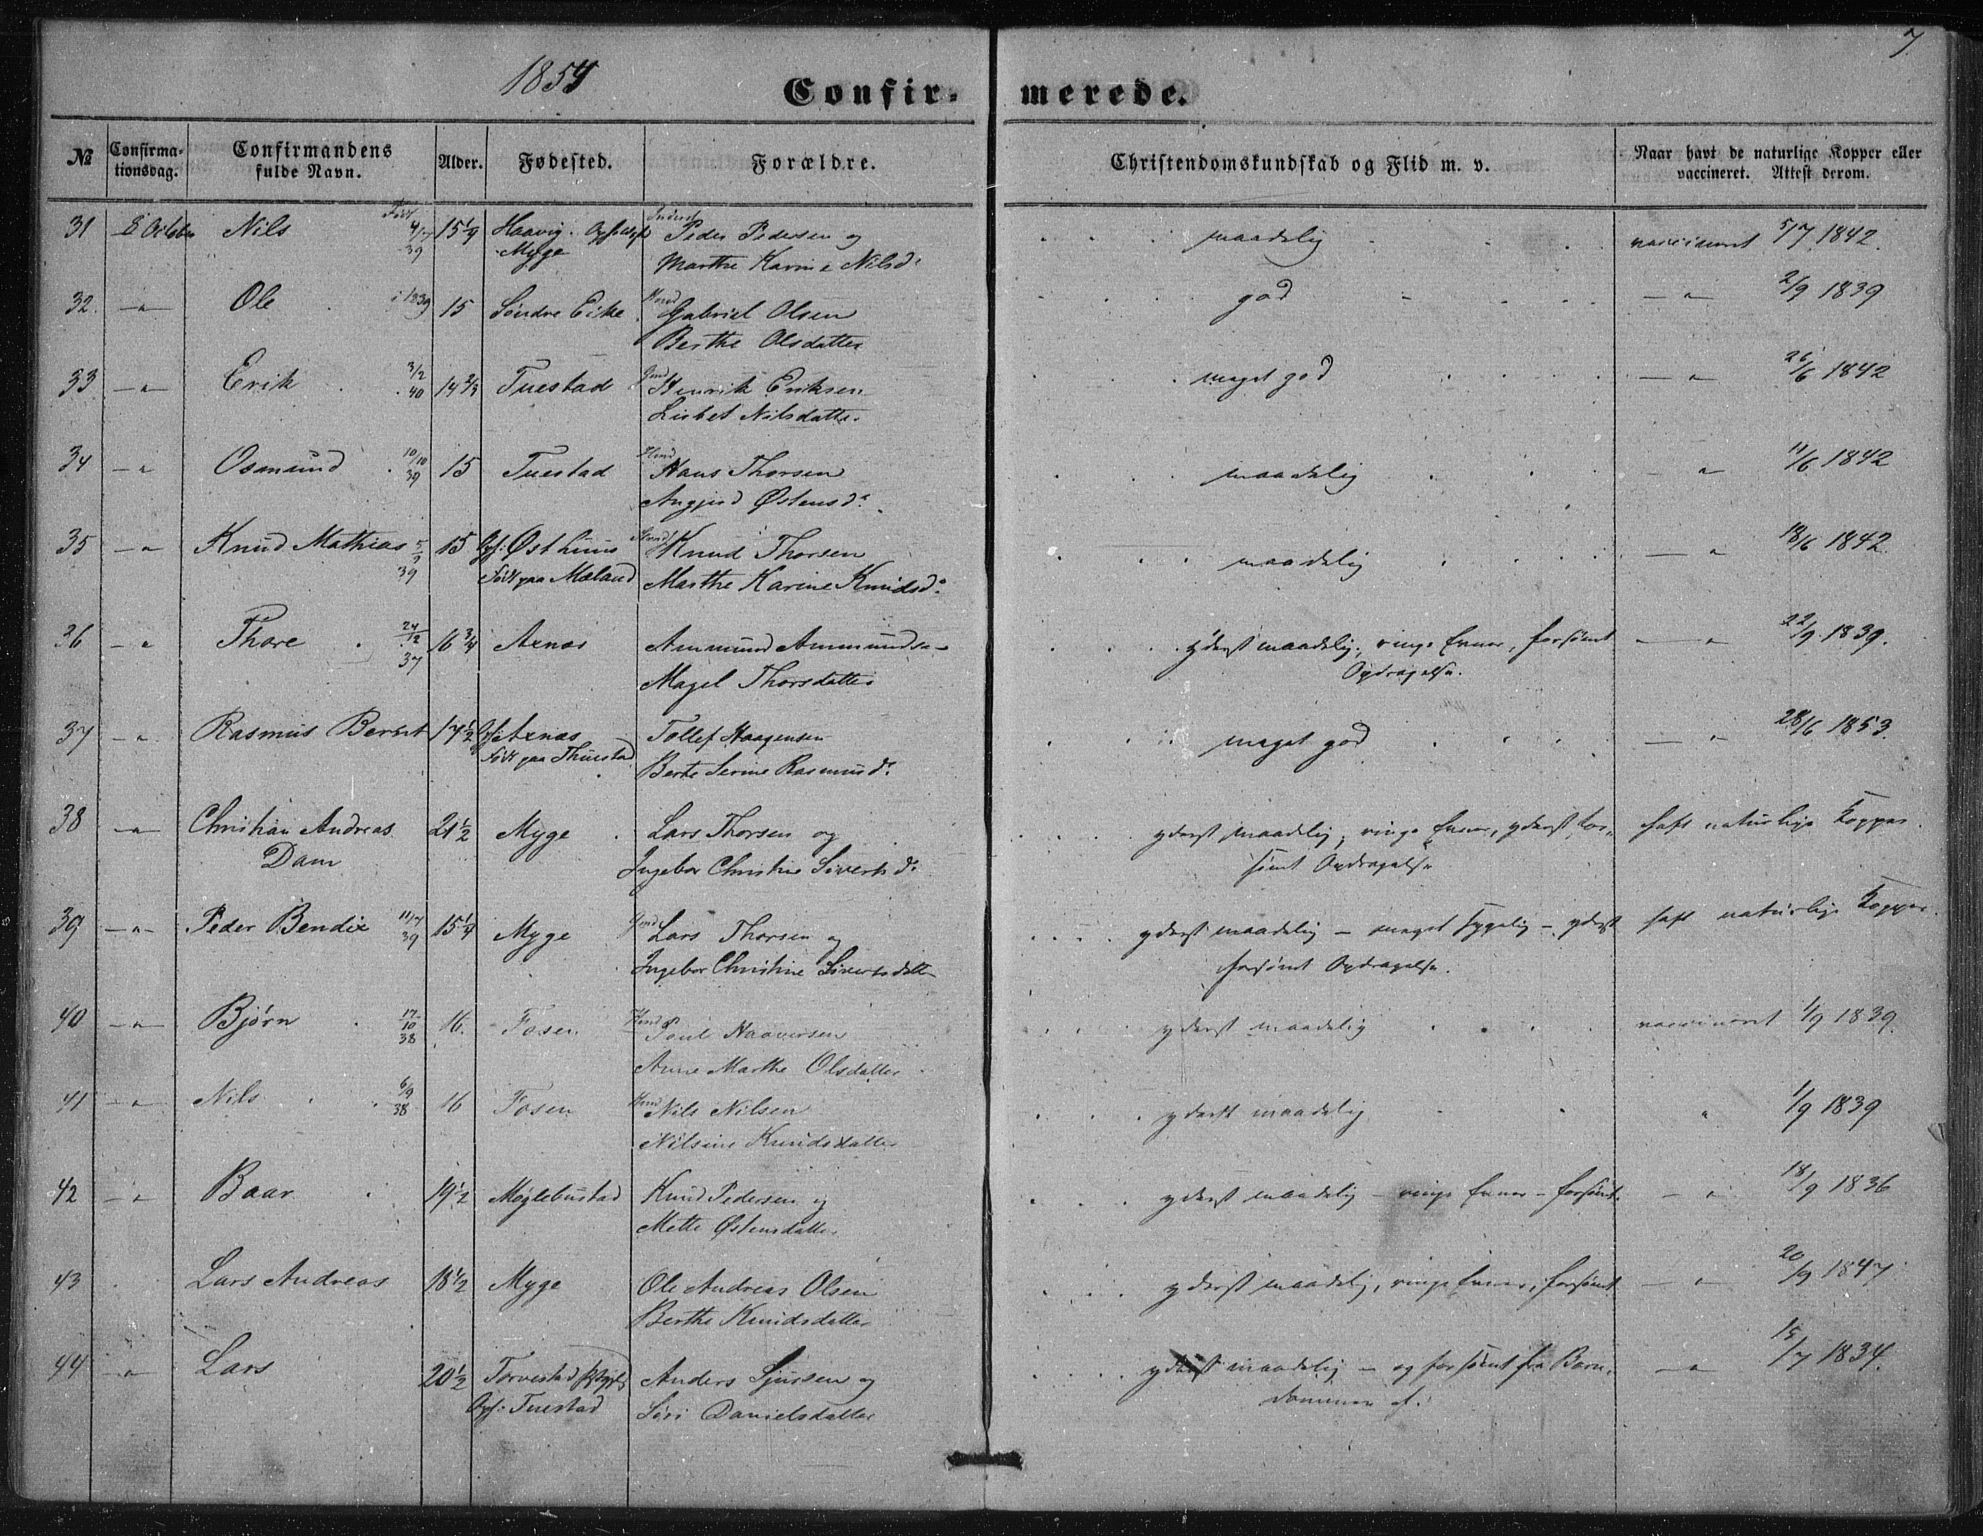 1854
7
Confir-
merede.
№
Confirma-
tionsdag.
Confirmandens
fulde Navn.
Alder.
Fødested.
Forældre.
Christendomskundskab og Flid m. v.
Naar havt de naturlige Kopper eller
vaccineret. Attest derom.
31 8 Octobr Nils Født 4/7 39 15 1/9 Haavig. Peder Pedersen og maadelig vaccineret 5/7 1842.
Myge Marthe Karine Nilsd.
32. —"— Ole i 1839 15 Søndre Eike Gabriel Olsen god —"— 2/9 1839
Berthe Olsdatter
33 —"— Erik 3/2 40 14 2/3 Tuestad Henrik Eriksen meget god —"— 26/6 1842
Lisbet Nilsdatter
34 —"— Osmund 10/10 39 15 Tuestad Hans Thorsen maadelig —"— 11/6 1842
Østensd.
35 —"— Knud Mathias 5/9 39 15 Opf: Østhuus Knud Thorsen maadelig —"— 18/6 1842
Født paa Mæland Marthe Karine Knudsd.
36 —"— Thore 24/12 37 16 3/4 Axnæs Ammund Ammundsen yderst maadelig, ringe Evner, forsømt —"— 22/9 1839.
Opdragelse.
Magel Thorsdatter
37 —"— Rasmus Bernt 17 1/2 Opf: Axnæs Tollef Haagensen meget god —"— 28/6 1853.
Født paa Thuestad Berte Serine Rasmusd.
38 —"— Christian Andreas 21 1/2 Myge Lars Thorsen og yderst maadelig, ringe Evner, yderst for- haft naturlige Kopper.
Dam Ingebor Christine Sivertsd. sømt Opdragelse
39 —"— Peder Bendix 11/7 39 15 1/4 Myge Lars Thorsen og yderst maadelig — meget sygelig — yderst haft naturlige Kopper.
Ingebor Christine Sivertsdatter forsømt Opdragelse.
40 —"— Bjørn 17/10 38 16. Fosen Poul Haaversen yderst maadelig vaccineret 1/9 1839.
Anne Marthe Olsdatter
41 —"— Nils 6/9 38 16 Fosen Nils Nilsen yderst maadelig " 1/9 1839
Nilsine Knudsdatter
42 —"— Baar 19 1/2 Meglebustad Knud Pedersen og yderst maadelig — ringe Evner — forsømt. —"— 18/9 1836
Mette Østensdatter
43 Lars Andreas 18 1/2 Myge Ole Andreas Olsen yderst maadelig, ringe Evner, forsømt —"— 20/9 1847
Berthe Knudsdatter
44 —"— Lars 20 1/2 Torvestad Anders Sjursen og yderst maadelig — og forsømt fra Barn- —"— 15/7 1834.
Opf: Tuestad Siri Danielsdatter dommen af.